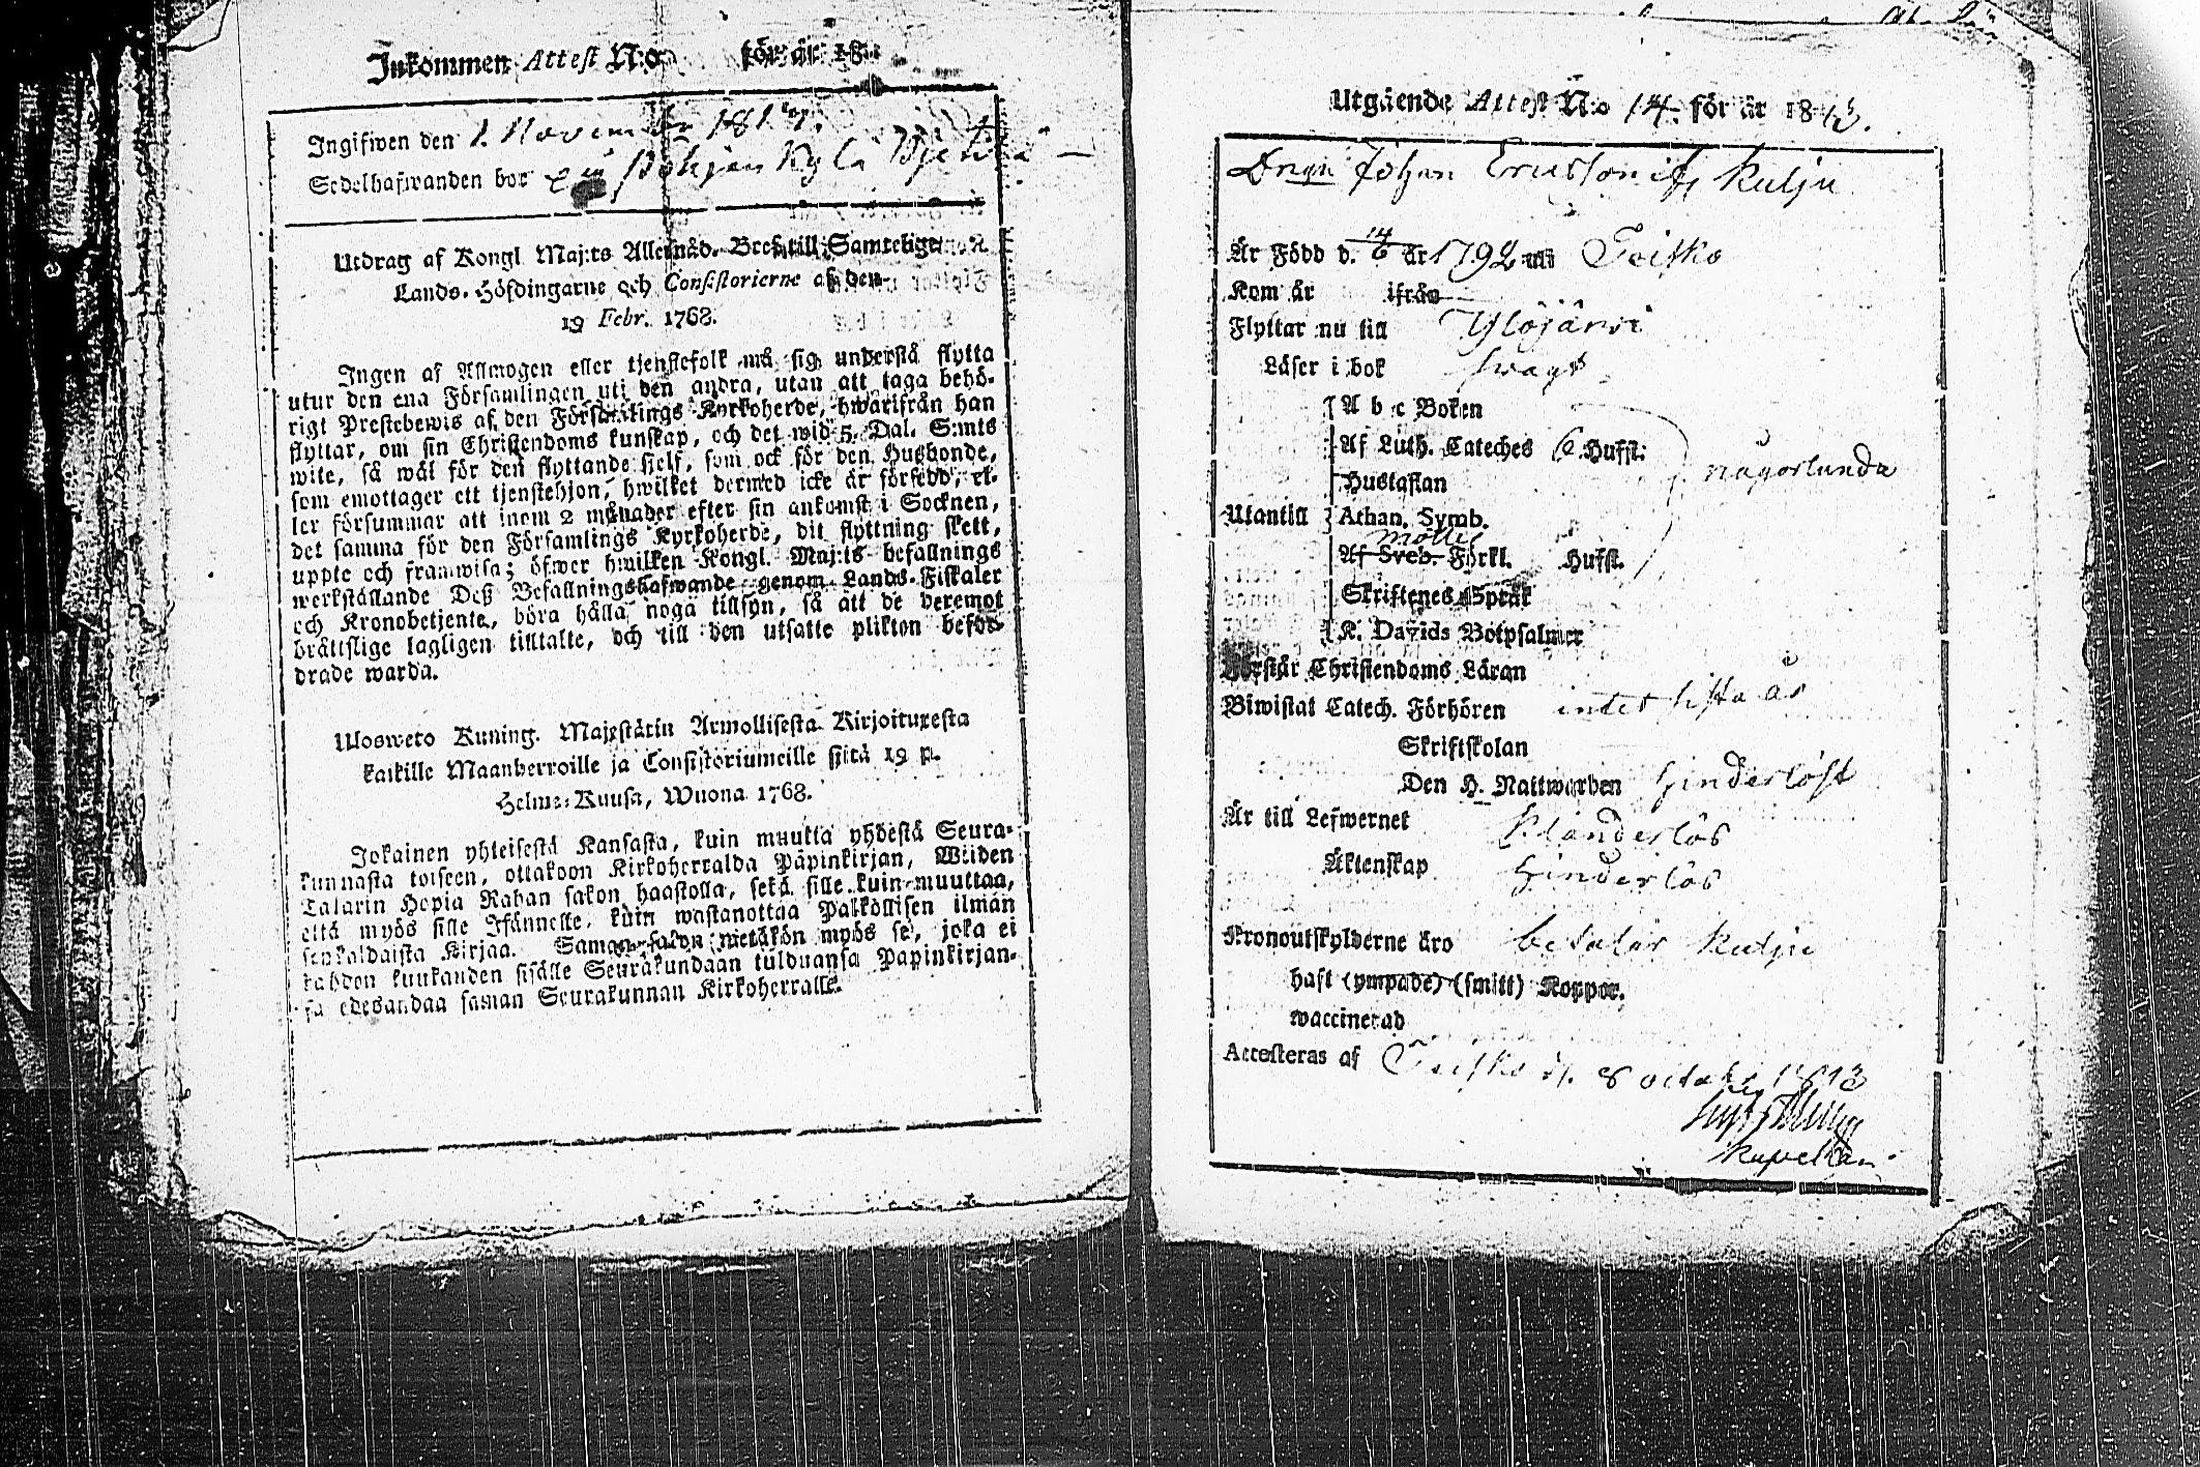 Inkommen Attest N:o för år 18
Ingifwen den 1 November 181
Sedelhafwanden bor Pohjankylä
Utdrag af Kongl. Maj:ts Allernåd. Bref till Samtelige
Lands-Höfdingarne och Consistorierne af den
19 Febr. 1768.
Ingen af Allmogen eller tjenstefolk må sig understå flytta
utur den ena Församlingen uti den andra, utan att taga behö-
rigt Prestebewis af den Församlings Kyrkoherde, hwarifrån han
flyttar, om sin Christendoms kunskap, och det wid 5. Dal. S:mts
wite, så wäl för den flyttande sjelf, som ock för den Husbonde,
som emottager ett tjenstehjon, hwilket dermed icke är försedd, el-
ler försummar att inom 2 månader efter sin ankomst i Socknen,
det samma för den Församlings Kyrkoherde, dit flyttning skett,
uppte och framwisa; öfwer hwilken Kongl. Maj:ts befallnings
werkställande Deß Befallningshafwande genom Lands-Fiskaler
och Kronobetjente, böra hålla noga tillsyn, så att de deremot
brättslige lagligen tilltalte, och till den utsatte plikten beför-
drade warda.
Ulosweto Kuning. Majestätin Armollisesta Kirjoituxesta
kaikille Maanherroille ja Consistoriumeille siitä 19 p.
Helme-Kuusa, Wuona 1768.
Jokainen yhteisestä Kansasta, kuin muutta yhdestä Seura-
kunnasta toiseen, ottakoon Kirkoherralda Papinkirjan, Wiiden
Talarin Hopia Rahan sakon haastolla, sekä sille kuin muuttaa,
että myös sille Isännelle, kuin wastanottaa Palkollisen ilman
senkaldaista Kirjaa. Saman sakon wetäkön myös se, joka ei
kahden kuukauden sisälle Seurakundaan tulduansa Papinkirjan-
sa edesandaa saman Seurakunnan Kirkoherralle.
Utgående Attest N:o 14. för år 1813.
Drgn Johan Ericsson ifr Kulju
Är Född d. 14/6 år 1792 uti Teisko
Kom år ifrån
Flyttar nu till Ylöjärvi
Läser i bok swagt
A b c Boken
Af Luth. Cateches 6 Hufst.
Hustaflan
någorlunda
Utantill Athan. Symb.
Möllers
Af Sveb. Förkl. Hufst.
Skriftenes Språk
K. Davids Botpsalmer
Förstår Christendoms Läran
Biwistat Catech. Förhören intet sista år
Skriftskolan
Den H. Nattwarden hinderlöst
Är till Lefwernet klanderlös
Äktenskap hinderlös
Kronoutskylderne äro betalar Kulju
haft (ympade) (smitt) Koppor.
waccinerad
Attesteras af Teisko d. 8 octobr 1813
kapellan